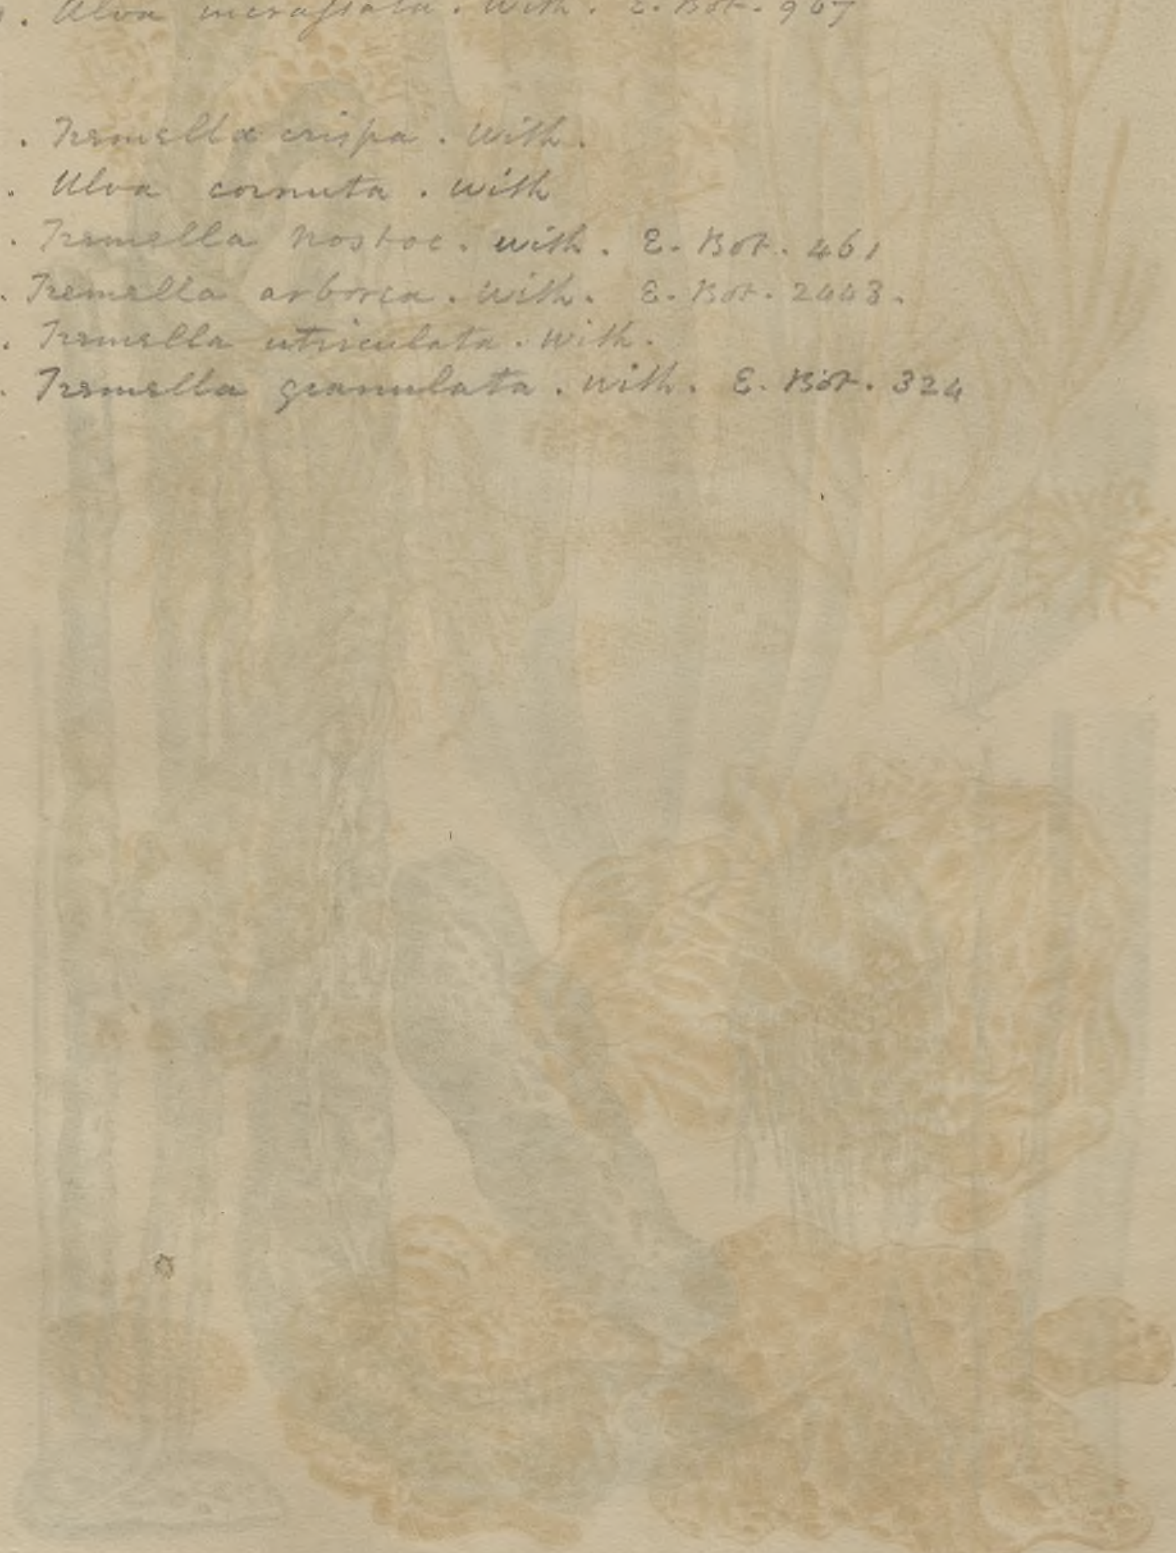 . Ulva incrassata. With. E. Bot. 967
. Tremella crispa. With.
. Ulva cornuta. With
. Tremella Nostoc. With. E. Bot. 461
. Tremella arborea. With. E. Bot. 2448.
. Tremella utriculata. With.
. Tremella granulata. With. E. Bot. 324